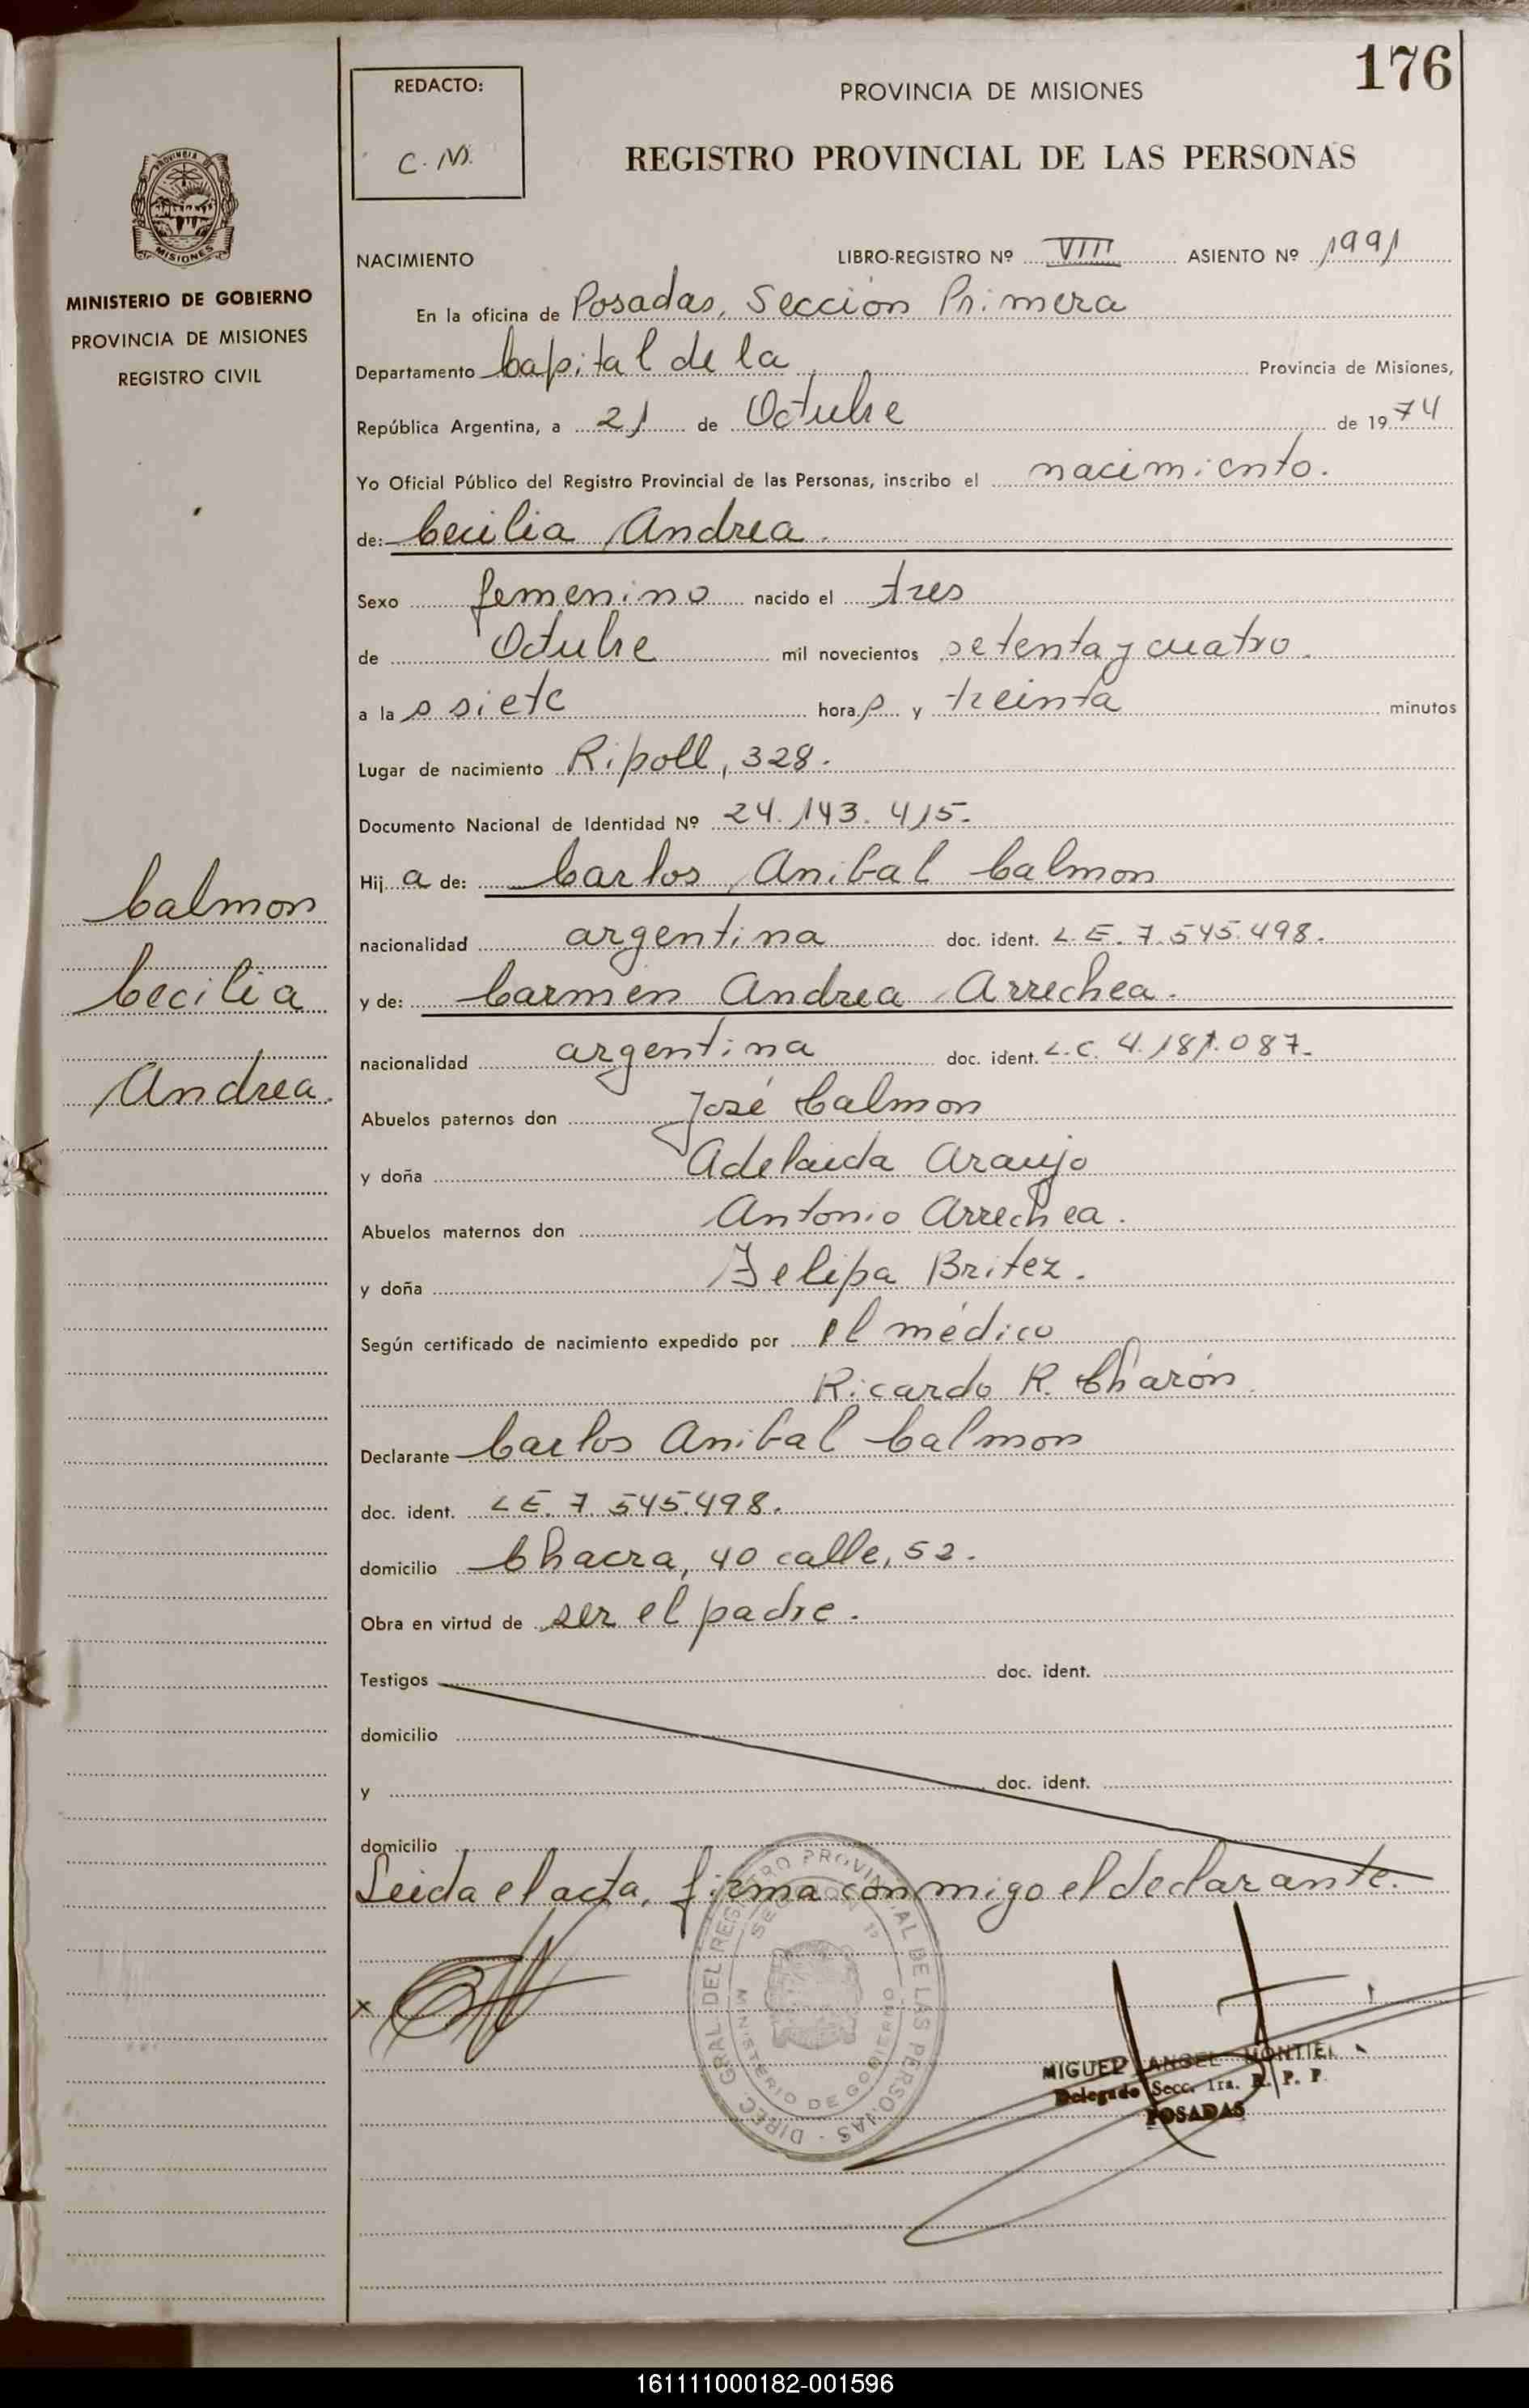 176
REDACTO:
C. M.
PROVINCIA DE MISIONES
REGISTRO PROVINCIAL DE LAS PERSONAS
PROVINCIA DE
MISIONES
MINISTERIO DE GOBIERNO
PROVINCIA DE MISIONES
REGISTRO CIVIL
NACIMIENTO LIBRO-REGISTRO Nº VIII ASIENTO Nº 1991
En la oficina de Posadas, Sección Primera
Departamento Capital de la Provincia de Misiones,
República Argentina, a 21 de Octubre de 1974
Yo Oficial Público del Registro Provincial de las Personas, inscribo el nacimiento.
de: Cecilia Andrea.
Sexo femenino nacido el tres
de Octubre mil novecientos setenta y cuatro.
a la s siete hora s y treinta minutos
Lugar de nacimiento Ripoll, 328.
Documento Nacional de Identidad Nº 24.143.415.
Hij a de: Carlos Anibal Calmon
nacionalidad argentina doc. ident. L.E. 7.545.498.
y de: Carmen Andrea Arrechea.
nacionalidad argentina doc. ident. L.C. 4.181.087.
Abuelos paternos don José Calmon
y doña Adelaida Araujo
Abuelos maternos don Antonio Arrechea.
y doña Felipa Britez.
Según certificado de nacimiento expedido por el médico
Ricardo R. Charón.
Declarante Carlos Anibal Calmon
doc. ident. L.E. 7.545.498.
domicilio Chacra, 40 calle, 52.
Obra en virtud de ser el padre.
Testigos doc. ident.
domicilio
y doc. ident.
domicilio
Leida el acta, firma conmigo el declarante.
Calmon
Cecilia
Andrea.
x
DIREC. GRAL. DEL REGISTRO PROVINCIAL DE LAS PERSONAS
SECCION 1ª
MINISTERIO DE GOBIERNO
MIGUEL ANGEL MONTIEL
Delegado Secc. 1ra. R. P. P.
POSADAS
161111000182-001596